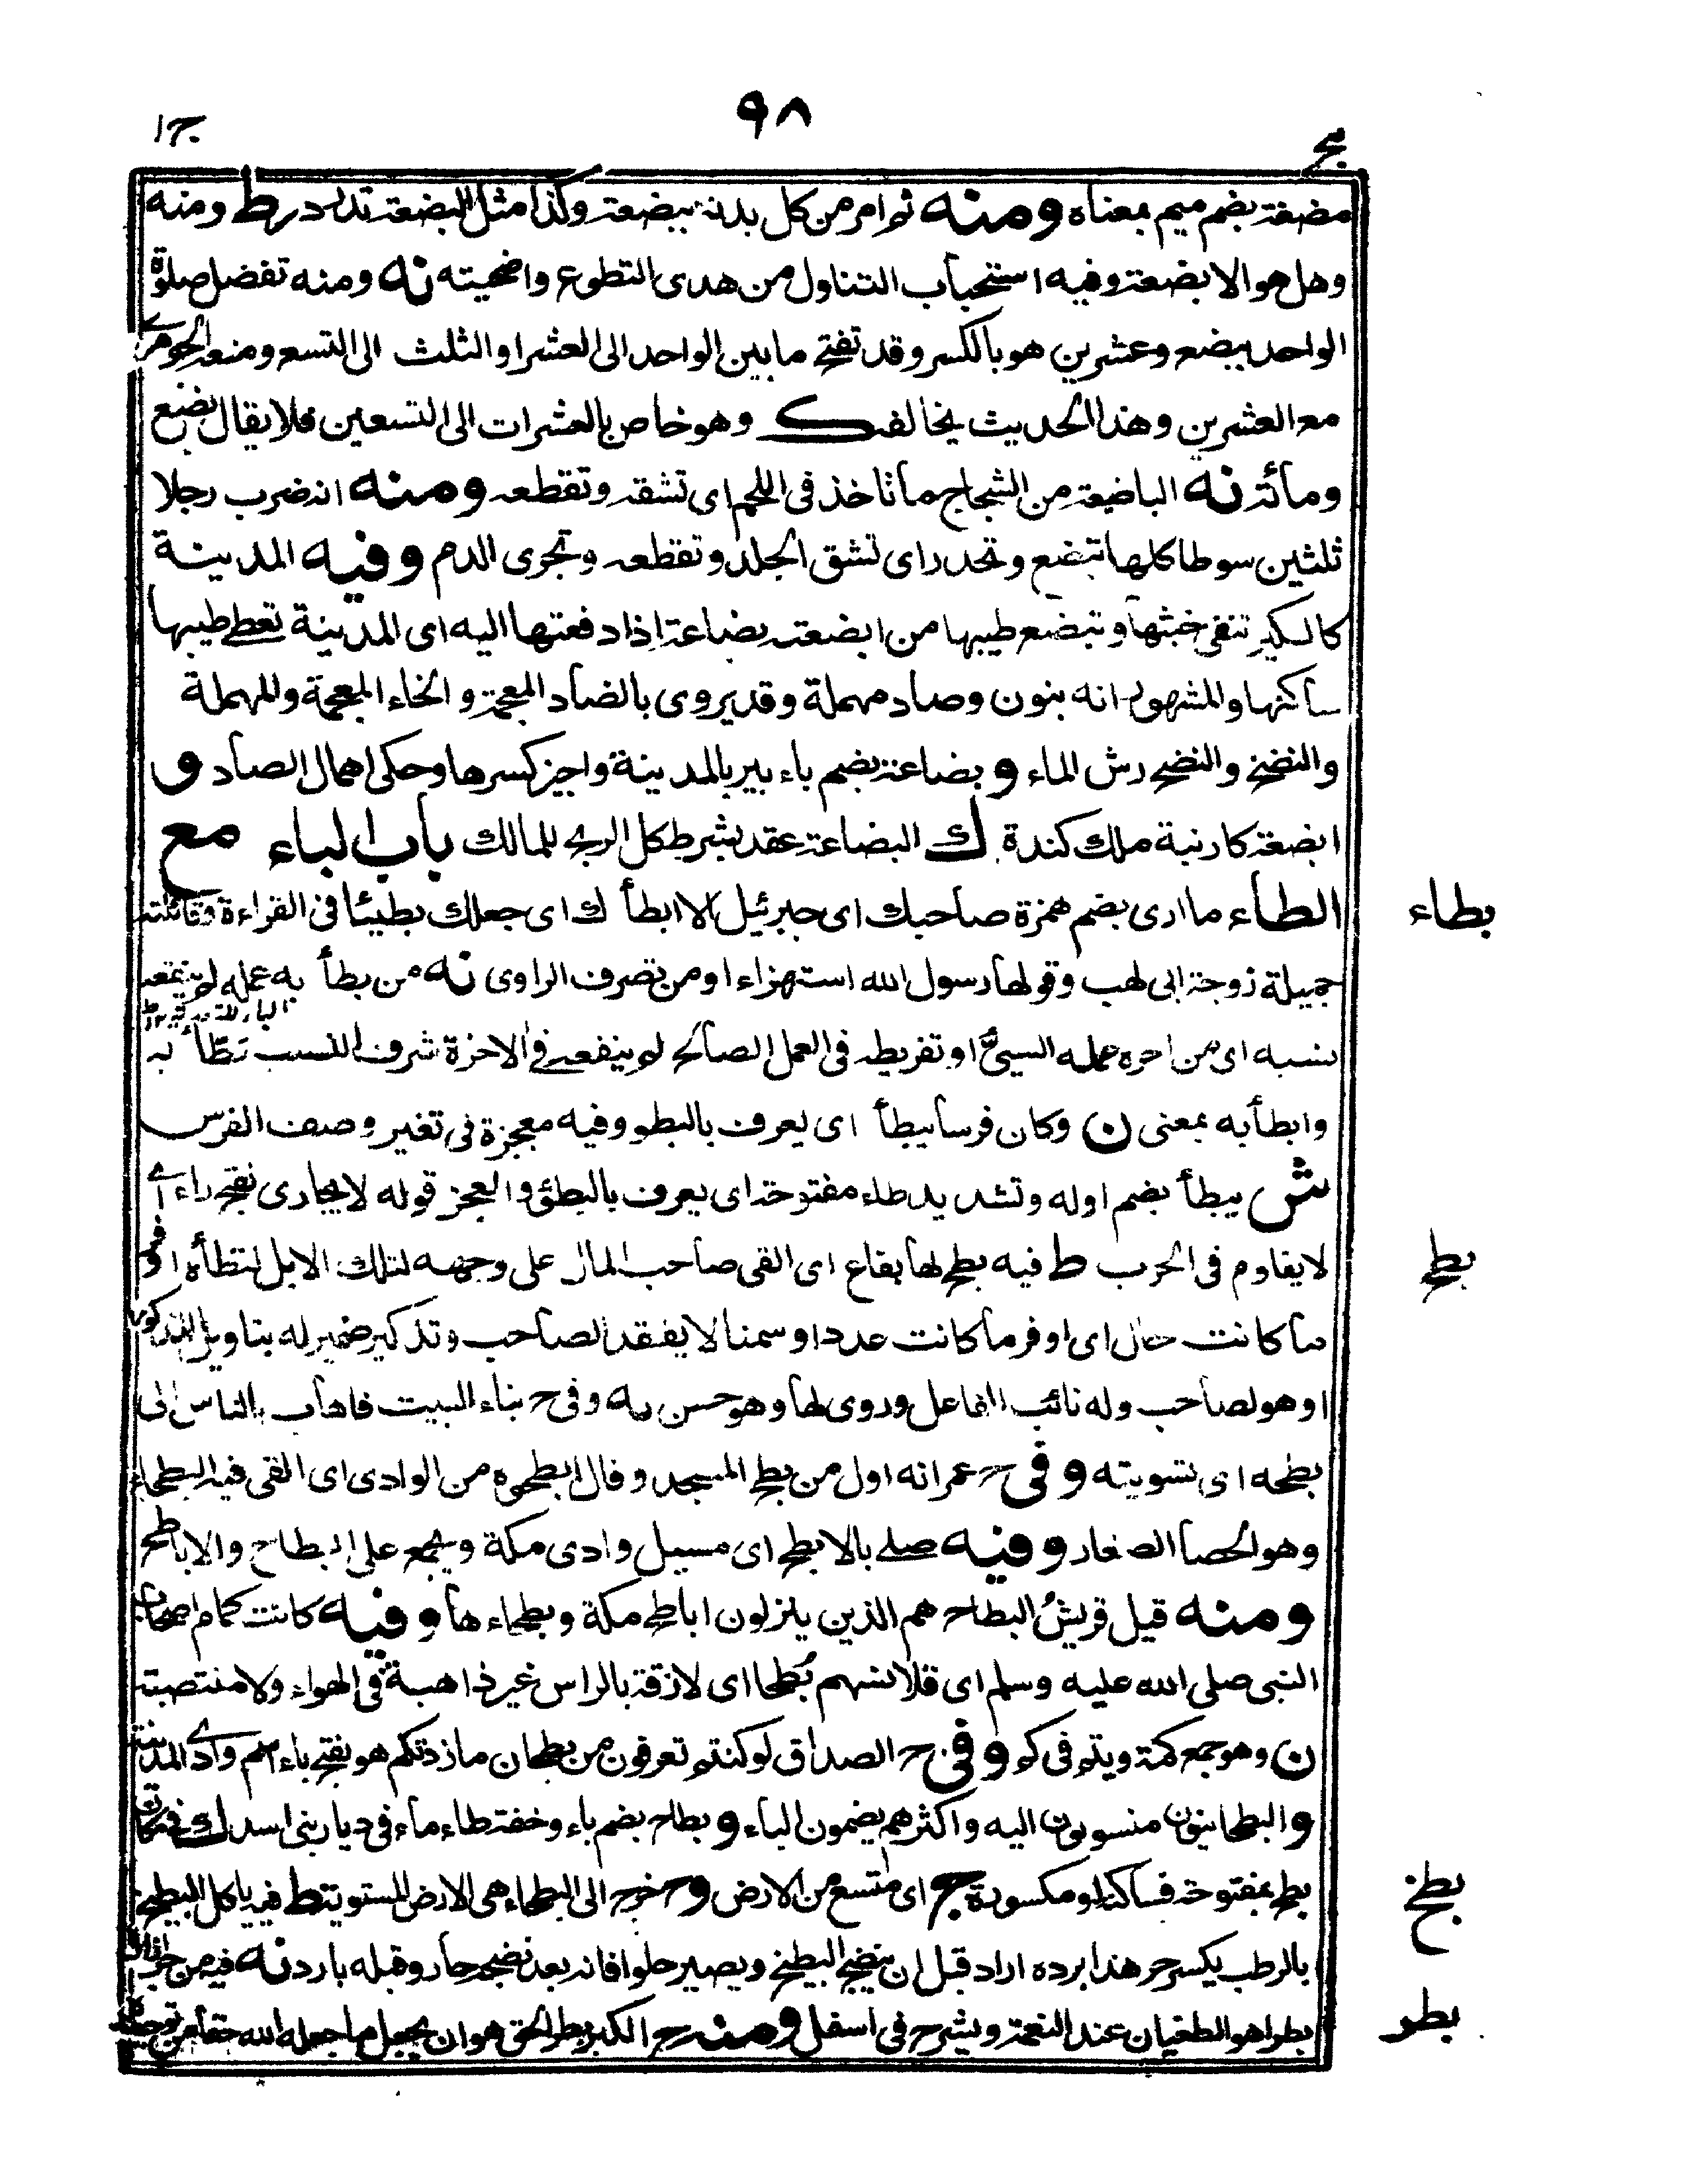 ج ١
٩٨
مضغة بضم ميم بمعناه ومنه ثم امر من كل بدنة ببضعة وكذا مثل البضعة تدردر ط ومنه
وهل هو الا بضعة وفيه استحباب التناول من هدى التطوع واضحيته نه ومنه تفضل صلوة
الواحد ببضع وعشرين هو بالكسر وقد تفتح ما بين الواحد الى العشر او الثلث الى التسع ومنعه الجوهري
مع العشرين وهذا الحديث يخالفه ك وهو خاص بالعشرات الى التسعين فلا يقال بضع
ومائة نه الباضعة من الشجاج ما تاخذ فى اللحم اى تشقه وتقطعه ومنه انه ضرب رجلا
ثلثين سوطا كلها تبضع وتحدر اى تشق الجلد وتقطعه وتجرى الدم وفيه المدينة
كالكير تنفى خبثها وتبضع طيبها من ابضعته بضاعة اذا دفعتها اليه اى المدينة تعطے طيبها
ساكنها والمشهور انه بنون وصاد مهملة وقد يروى بالضاد المعجمة و الخاء المعجمة والمهملة
والنضخ والنضح رش الماء و بضاعة بضم باء بير بالمدينة واجيز كسرها وحكى اهمال الصاد و
ابضعة كارنبة ملك كندة ك البضاعة عقد بشرط كل الربح للمالك باب الباء مع
بطاء
الطاء ما ارى بضم همزة صاحبك اى جبرئيل الا ابطأ ك اى جعلك بطيئا فى القراءة وقائلته
جميلة زوجة ابى لهب وقولها رسول الله استهزاء او من تصرف الراوى نه من بطأ به عمله لم ينفعه
نسبه اى من اخره عمله السيئ او تفريطه فى العمل الصالح لم ينفعه فى الاخرة شرف النسب بَطّأ به
وابطأ به بمعنى ن وكان فرسا يبطأ اى يعرف بالبطو وفيه معجزة فى تغير وصف الفرس
ش يبطأ بضم اوله وتشديد طاء مفتوحة اى يعرف بالبطئ والعجز قوله لا يجارى بفتح راء اے
بطح
لا يقاوم فى الحرب ط فيه بطح لها بقاع اى القى صاحب المال على وجهه لتلك الابل لتطأه اوفر
ما كانت حال اى اوفر ما كانت عددا وسمنا لا يفقد الصاحب وتذكير ضمير له بتاويل المذكور
او هو لصاحب وله نائب الفاعل وروى لها وهو حسن به وفى ح بناء البيت فاهاب بالناس الى
بطحه اى تسويته وفى ح عمر انه اول من بطح المسجد وقال ابطحوه من الوادى اى القى فيه البطحاء
وهو الحصا الصغار وفيه صلے بالابطح اى مسيل وادى مكة ويجمع على البطاح والاباطح
ومنه قيل قريش البطاح هم الذين ينزلون اباطح مكة وبطحاء ها وفيه كانت كمام اصحاب
النبى صلى الله عليه وسلم اى قلانسهم بُطحا اى لازقة بالراس غير ذاهبة فى الهواء ولا منتصبة
ن وهو جمع كمة ويتم فى كم وفى ح الصداق لو كنتم تعرفون من بطحان ما زدتكم هو بفتح باء اسم وادى المدينة
والبطحانيون منسوبون اليه واكثرهم يضمون الباء و بطاح بضم باء وخفة طاء ماء فى ديار بنى اسد ك
بطخ
بطح بمفتوحة فساكنة او مكسورة ج اى متسع من الارض و ح خرج الى البطحاء هى الارض المستوية ط فيه ياكل البطيخ
بالرطب يكسر حر هذا برده اراد قبل ان ينضج البطيخ ويصير حلوا فانه بعد نضجه حار وقبله بارد نه فيه من جر ازاره
بطر
بطرا هو الطغيان عند النعمة ويشرح فى اسفل ومنه ح الكبر بطر الحق هو ان يجعل ما جعله الله حقا من توحيده